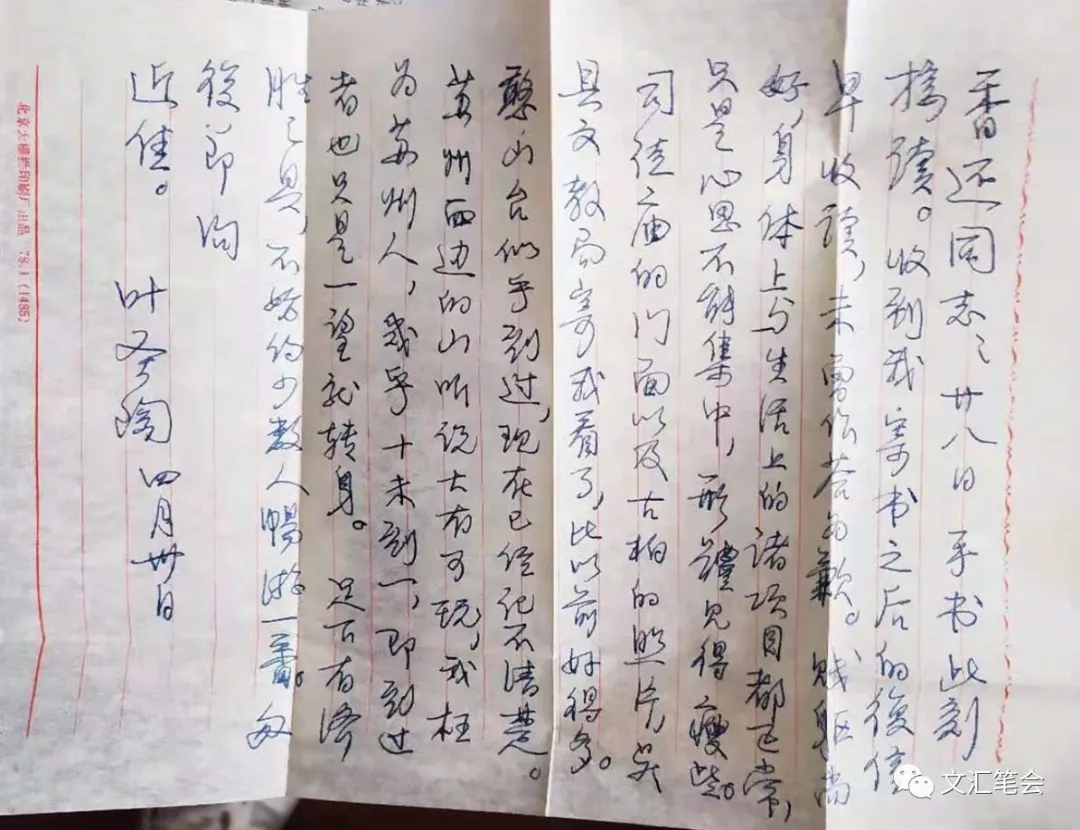 香还同志：廿八日手书此刻
接读。收到我寄书之后的復信
早收读，未曾作答為歉。贱躯尚
好，身体上与生活上的诸项目都正常，
只是心思不能集中，形體見得瘦些。
司徒庙的门面以及古柏的照片，吴
县文教局寄我看了，比以前好得多。
憨山台似乎到过，现在已经记不清楚。
苏州西边的山听说大有可玩，我枉
为苏州人，幾乎十未到一，即到过
者也只是一望就转身。足下有济
胜之具，不妨约少数人暢游一番。匆
復，即问
近佳。 叶圣陶 四月卅日
北京大栅栏印刷厂出品 78.1 (1485)
文汇笔会